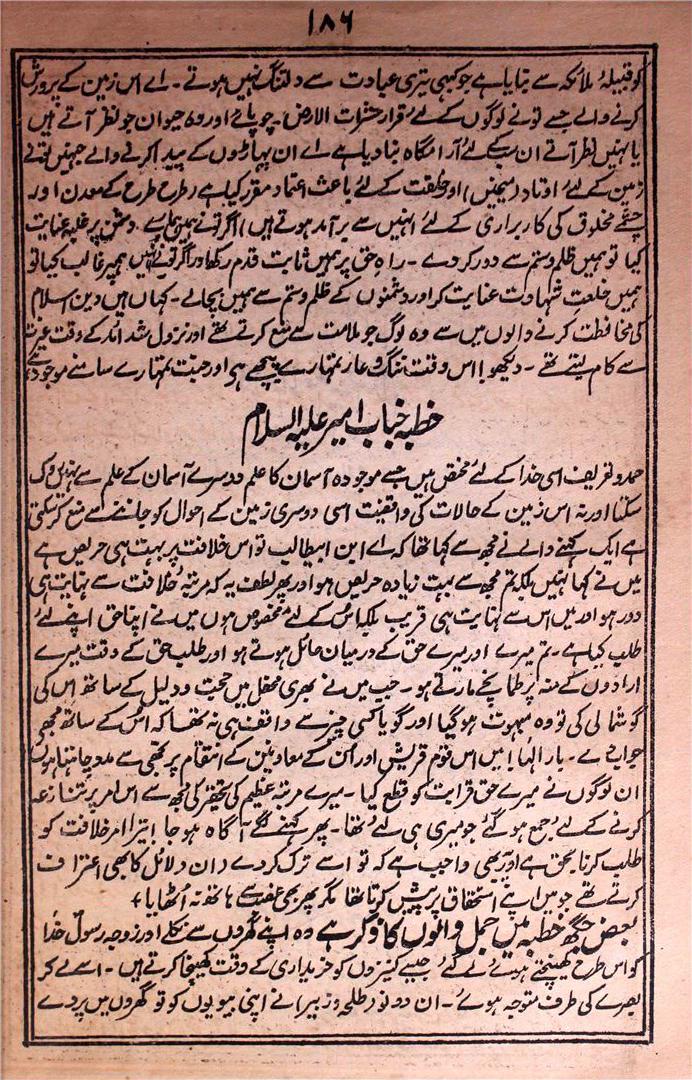 ۱۸۶
کو قبیلہٴ ملائکہ سے بنایا ہے جو کبھی تیری عبادت سے دلتنگ نہیں ہوتے۔ اے اس زمین کے پرورش
کرنے والے جسے تونے لوگوں کے لئے قرار حشرات الارض۔ چوپائے اور وہ حیوان جو نظر آتے ہیں
یا نہیں نظر آتے ان سبکے لئے آرامگاہ بنا دیا ہے اے ان پہاڑوں کے پیدا کرنے والے جنہیں تونے
زمین کے لئے اوتاد (میخیں) اور خلقت کے لئے باعث اعتماد مقرر کیا ہے (طرح طرح کے معدن اور
چشمے مخلوق کی کاربراری کے لئے انہیں سے برآمد ہوتے ہیں) اگر تونے ہمیں ہمارے دشمن پر غلبہ عنایت
کیا تو ہمیں ظلم و ستم سے دور کردے۔ راہ حق پر ہمیں ثابت قدم رکھ اور اگر تونے انہیں ہمپر غالب کیا تو
ہمیں خلعت شہادت عنایت کر اور دشمنوں کے ظلم و ستم سے ہمیں بچالے۔ کہاں ہیں دین اسلام
کی محافظت کرنے والوں میں سے وہ لوگ جو ملامت سے منع کرتے تھے اور نزول شدائد کے وقت غیرت
سے کام لیتے تھے۔ دیکھو! اس وقت ننگ و عار تمہارے پیچھے ہی اور جنت تمہارے سامنے موجود ہے
خطبہ جناب امیر علیہ السلام
حمد و تعریف اسی خدا کے لئے مختص ہیں جسے موجودہ آسمان کا علم دوسرے آسمان کے علم سے نہیں روک
سکتا اور نہ اس زمین کے حالات کی واقفیت اسی دوسری زمین کے احوال کو جاننے سے منع کرسکتی
ہے ایک کہنے والے نے مجھ سے کہا تھا کہ اے ابن ابیطالب تو اس خلافت پر بہت ہی حریص ہے
میں نے کہا نہیں بلکہ تم مجھ سے بہت زیادہ حریص ہو اور پھر لطف یہ کہ مرتبہٴ خلافت سے نہایت ہی
دور ہو اور میں اس سے نہایت ہی قریب بلکہ اس کے لئے مخصوص ہوں میں نے اپنا حق اپنے لئے
طلب کیا ہے۔ تم میرے اور میرے حق کے درمیان حائل ہوتے ہو اور طلب حق کے وقت میرے
ارادوں کے منہ پر طمانچے مارتے ہو۔ جب میں نے بھری محفل میں حجت و دلیل کے ساتھ اس کی
گوشمالی کی تو وہ مبہوت ہوگیا اور گویا کسی چیز سے واقف ہی نہ تھا کہ اس کے ساتھ مجھے
جواب دے۔ بار الہا! میں اس قوم قریش اور ان کے معاونین کے انتقام پر تجھی سے مدد چاہتا ہوں
ان لوگوں نے میرے حق قرابت کو قطع کیا۔ میرے مرتبہٴ عظیم کی تحقیر کی مجھ سے اس امر پر تنازعہ
کرنے کے لئے جمع ہوگئے جو میری ہی لئے تھا۔ پھر کہنے لگے آگاہ ہوجا! تیرا امر خلافت کو
طلب کرنا بحق ہے اور یہ بھی واجب ہے کہ تو اسے ترک کردے (ان دلائل کا بھی اعتراف
کرتے تھے جو میں اپنے استحقاق پر پیش کرتا تھا مگر پھر بھی غصب سے ہاتھ نہ اٹھایا)
بعض جگہ خطبہ میں جمل والوں کا ذکر ہے وہ اپنے گھروں سے نکلے اور زوجہ رسولؐ خدا
کو اس طرح کھینچتے ہوئے لے گئے جیسے کنیزوں کو خریداری کے وقت کھینچا کرتے ہیں۔ اسے لے کر
بصرے کی طرف متوجہ ہوئے۔ ان دونو (طلحہ و زبیر) نے اپنی بیویوں کو تو گھروں میں پردے